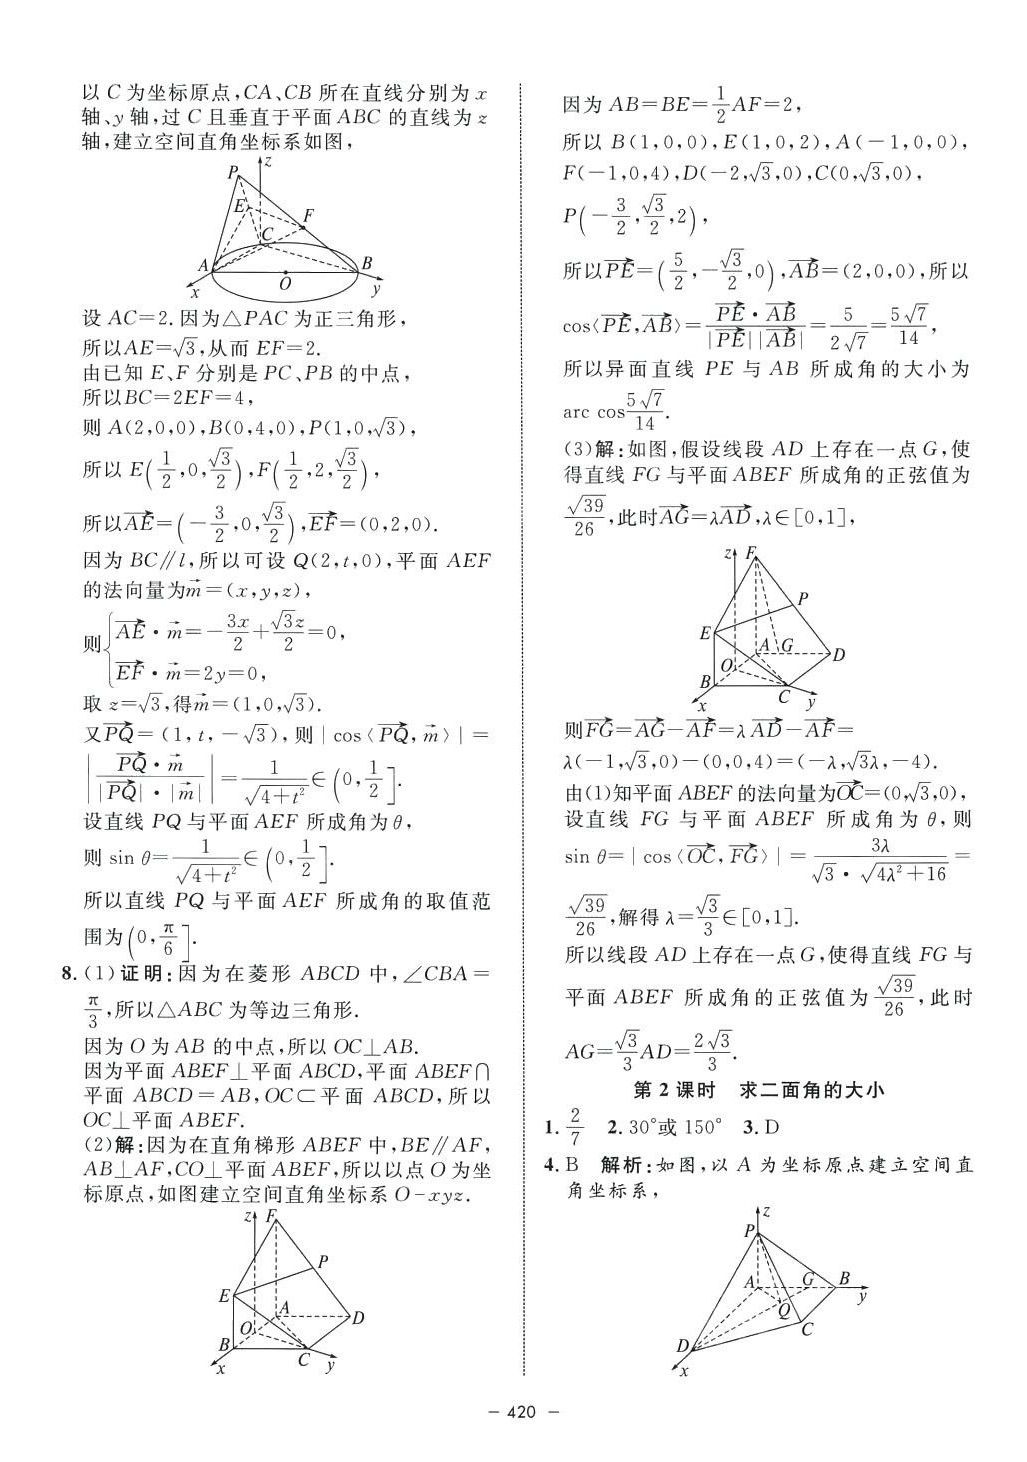 以 C 为坐标原点,CA、CB 所在直线分别为 x
轴、y 轴,过 C 且垂直于平面 ABC 的直线为 z
轴,建立空间直角坐标系如图,
P z
E F
C
A B
x O y
设 AC=2.因为△PAC 为正三角形,
所以AE=√3,从而 EF=2.
由已知 E、F 分别是 PC、PB 的中点,
所以BC=2EF=4,
则 A(2,0,0),B(0,4,0),P(1,0,√3),
所以 E(1/2,0,√3/2),F(1/2,2,√3/2),
所以\overrightarrow{AE}=(-3/2,0,√3/2),\overrightarrow{EF}=(0,2,0).
因为 BC∥l,所以可设 Q(2,t,0),平面 AEF
的法向量为\vec{m}=(x,y,z),
则{\overrightarrow{AE}·\vec{m}=-3x/2+√3z/2=0,
\overrightarrow{EF}·\vec{m}=2y=0,
取 z=√3,得\vec{m}=(1,0,√3).
又\overrightarrow{PQ}=(1,t,-√3),则|cos⟨\overrightarrow{PQ},\vec{m}⟩|=
|\overrightarrow{PQ}·\vec{m}/(|\overrightarrow{PQ}|·|\vec{m}|)|=1/√(4+t²)∈(0,1/2].
设直线 PQ 与平面 AEF 所成角为θ,
则 sin θ=1/√(4+t²)∈(0,1/2].
所以直线 PQ 与平面 AEF 所成角的取值范
围为(0,π/6].
8.(1)证明:因为在菱形 ABCD 中,∠CBA=
π/3,所以△ABC 为等边三角形.
因为 O 为 AB 的中点,所以 OC⊥AB.
因为平面 ABEF⊥平面 ABCD,平面 ABEF∩
平面 ABCD=AB,OC⊂平面 ABCD,所以
OC⊥平面 ABEF.
(2)解:因为在直角梯形 ABEF 中,BE∥AF,
AB⊥AF,CO⊥平面 ABEF,所以以点 O 为坐
标原点,如图建立空间直角坐标系 O-xyz.
z F
P
E A
O D
B
x C y
因为 AB=BE=1/2AF=2,
所以 B(1,0,0),E(1,0,2),A(-1,0,0),
F(-1,0,4),D(-2,√3,0),C(0,√3,0),
P(-3/2,√3/2,2),
所以\overrightarrow{PE}=(5/2,-√3/2,0),\overrightarrow{AB}=(2,0,0),所以
cos⟨\overrightarrow{PE},\overrightarrow{AB}⟩=\overrightarrow{PE}·\overrightarrow{AB}/(|\overrightarrow{PE}||\overrightarrow{AB}|)=5/(2√7)=5√7/14,
所以异面直线 PE 与 AB 所成角的大小为
arc cos5√7/14.
(3)解:如图,假设线段 AD 上存在一点 G,使
得直线 FG 与平面 ABEF 所成角的正弦值为
√39/26,此时\overrightarrow{AG}=λ\overrightarrow{AD},λ∈[0,1],
z F
P
E
A G
O D
B
x C y
则\overrightarrow{FG}=\overrightarrow{AG}-\overrightarrow{AF}=λ\overrightarrow{AD}-\overrightarrow{AF}=
λ(-1,√3,0)-(0,0,4)=(-λ,√3λ,-4).
由(1)知平面 ABEF 的法向量为\overrightarrow{OC}=(0,√3,0),
设直线 FG 与平面 ABEF 所成角为 θ,则
sin θ=|cos⟨\overrightarrow{OC},\overrightarrow{FG}⟩|=3λ/(√3·√(4λ²+16))=
√39/26,解得 λ=√3/3∈[0,1].
所以线段 AD 上存在一点 G,使得直线 FG 与
平面 ABEF 所成角的正弦值为√39/26,此时
AG=√3/3AD=2√3/3.
第 2 课时 求二面角的大小
1. 2/7 2. 30°或 150° 3. D
4. B 解析:如图,以 A 为坐标原点建立空间直
角坐标系,
z
P
A G B
Q y
D C
x
- 420 -